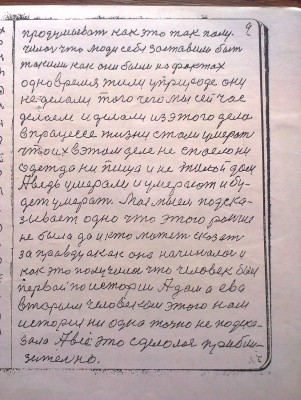 9
продумывает как это так полу-
чилось что люди себя заставили быт
такими как они были на фактах
одно время жили у природе они
не делали того чего мы сейчас
делаем и делаем из этого дела
в процессе жизни стали умерат
что их в этом деле не спасло ни
одежда ни пища и не жилой дом
А ведь умерали и умерают и бу-
дет умерат. Моя мысл подска-
зывает одно что этого раньше
не было да и кто может сказат
за правду а как она начиналося и
как это получилос что человек был
первой по истории Адам а ева
вторым человеком этого нам
история ни одна точно не подска-
зала А всё это сделалос прибли-
зително.